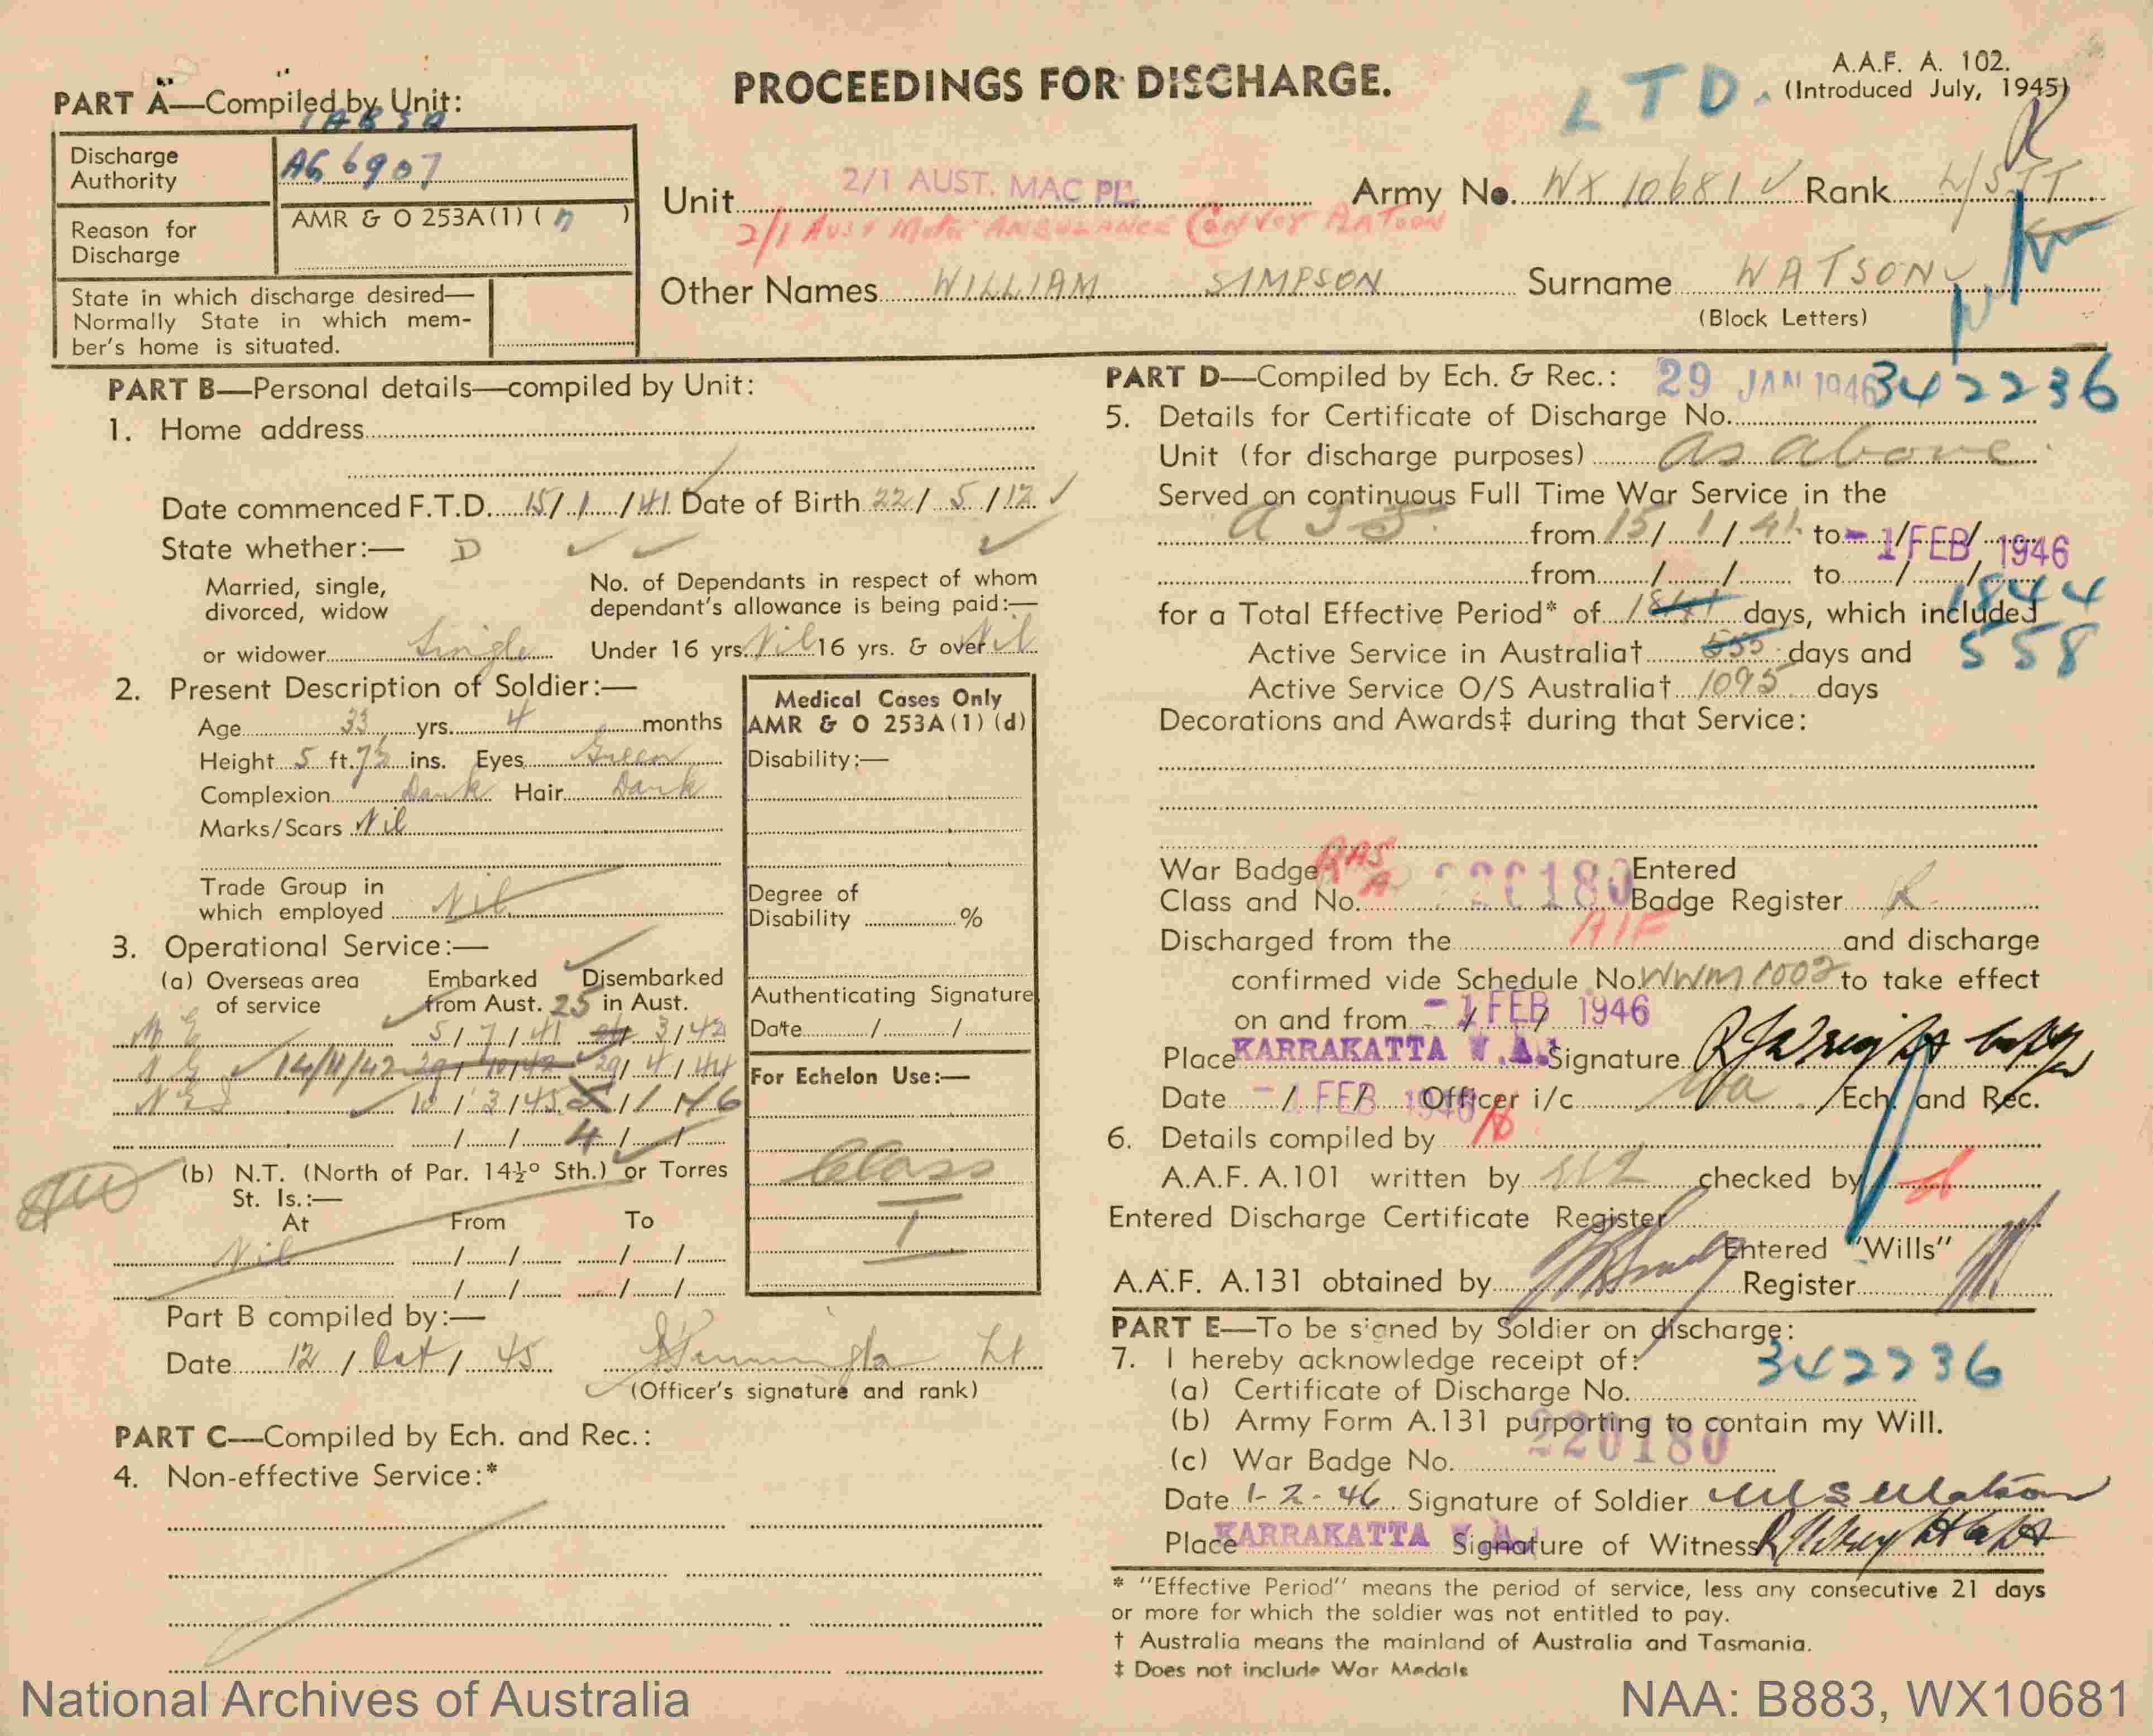 PROCEEDINGS FOR DISCHARGE.
A.A.F. A. 102.
(Introduced July, 1945)
LTD.
PART A—Compiled by Unit:
Discharge Authority AG 6907
Reason for Discharge AMR & O 253A(1) ( )
State in which discharge desired—
Normally State in which mem-
ber's home is situated.
Unit 2/1 AUST. MAC PL. Army No. WX 10681 Rank
2/1 Aust Motor AMBULANCE CONVOY PLATOON
Other Names WILLIAM SIMPSON Surname WATSON
(Block Letters)
PART B—Personal details—compiled by Unit:
1. Home address
Date commenced F.T.D. 15/1/41 Date of Birth 22/5/12
State whether:— D
Married, single,
divorced, widow
or widower Single
No. of Dependants in respect of whom
dependant's allowance is being paid:—
Under 16 yrs. Nil 16 yrs. & over Nil
2. Present Description of Soldier:—
Age 33 yrs. 4 months
Height 5 ft. ins. Eyes Green
Complexion Dark Hair Dark
Marks/Scars Nil
Trade Group in
which employed Nil
Medical Cases Only
AMR & O 253A(1) (d)
Disability:—
Degree of
Disability %
Authenticating Signature
Date / /
For Echelon Use:—
Class
I
3. Operational Service:—
(a) Overseas area of service Embarked from Aust. Disembarked in Aust.
M E 5/7/41 25 3/42
N G 14/11/42 29/4/44
N E I 10/3/45 4/1/46
(b) N.T. (North of Par. 14½° Sth.) or Torres
St. Is.:—
At From To
Nil / / / /
/ / / /
Part B compiled by:—
Date 12/Oct/45 Lt
(Officer's signature and rank)
PART C—Compiled by Ech. and Rec.:
4. Non-effective Service:*
PART D—Compiled by Ech. & Rec.: 29 JAN 1946 342236
5. Details for Certificate of Discharge No.
Unit (for discharge purposes) as above
Served on continuous Full Time War Service in the
from 15/1/41 to - 1 FEB 1946
from / / to / /
for a Total Effective Period* of 1841 days, which included 1844
Active Service in Australia† 555 days and 558
Active Service O/S Australia† 1095 days
Decorations and Awards‡ during that Service:
War Badge RAS Entered
Class and No. A 220180 Badge Register
Discharged from the AIF and discharge
confirmed vide Schedule No. WWM 1002 to take effect
on and from - 1 FEB 1946
Place KARRAKATTA W.A. Signature R J Wright
Date - 1 FEB 1946 Officer i/c Wa Ech. and Rec.
6. Details compiled by
A.A.F. A.101 written by checked by
Entered Discharge Certificate Register
Entered "Wills"
A.A.F. A.131 obtained by Register
PART E—To be signed by Soldier on discharge:
7. I hereby acknowledge receipt of:
(a) Certificate of Discharge No. 342236
(b) Army Form A.131 purporting to contain my Will.
(c) War Badge No. 220180
Date 1-2-46 Signature of Soldier W S Watson
Place KARRAKATTA W.A. Signature of Witness
* "Effective Period" means the period of service, less any consecutive 21 days
or more for which the soldier was not entitled to pay.
† Australia means the mainland of Australia and Tasmania.
‡ Does not include War Medals
National Archives of Australia
NAA: B883, WX10681